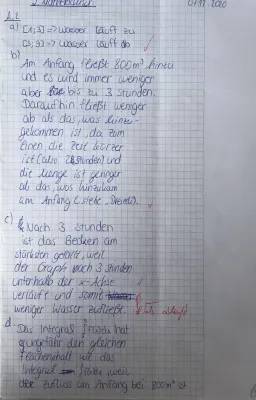 07.11.2020
A.1
a) [0,3] => Wasser läuft zu
[3,5] => Wasser läuft ab
b)
Am Anfang fließt 800m³ hinzu
und es wird immer weniger
aber bis zu 3 Stunden.
Daraufhin fließt weniger
ab als das, was hinzu-
gekommen ist, da zum
einen, die Zeit kürzer
ist (also 2 Stunden) und
die Menge ist geringer
als das, was hinzukam
am Anfang (siehe
c) Nach 3 Stunden
ist das Becken am
stärksten gefüllt, weil
der Graph nach 3 Stunden
unterhalb der x-Achse
verläuft und somit
weniger Wasser zufließt.
d Das Integral hat
ungefähr den gleichen
Flächeninhalt wie das
Integral weil
der Zufluss am Anfang bei 800m³ ist